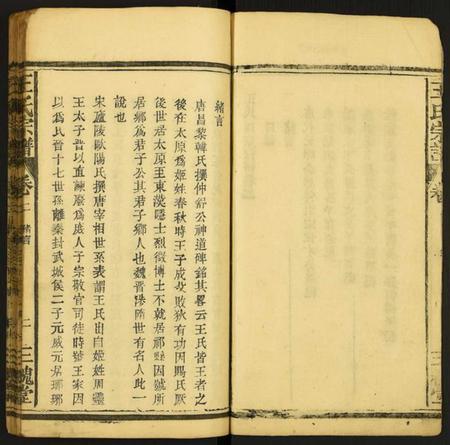 緒言
唐昌黎韓氏撰仲舒公神道碑銘其畧云王氏皆王者之
後在太原爲姬姓春秋時王子成父敗狄有功因賜氏厥
後世居太原至東漢隱士烈徵博士不就居祁縣因號所
居鄉爲君子公其君子鄉人也魏晉隋世有名人此一
說也
宋廬陵歐陽氏撰唐宰相世系表謂王氏出自姬姓周靈
王太子晉以直諫廢爲庶人子宗敬官司徒時號王家因
以爲氏晉十七世孫離秦封武城侯二子元威元居瑯琊
王氏宗譜
卷二
緒言
三槐堂
王氏宗譜
卷
三槐堂